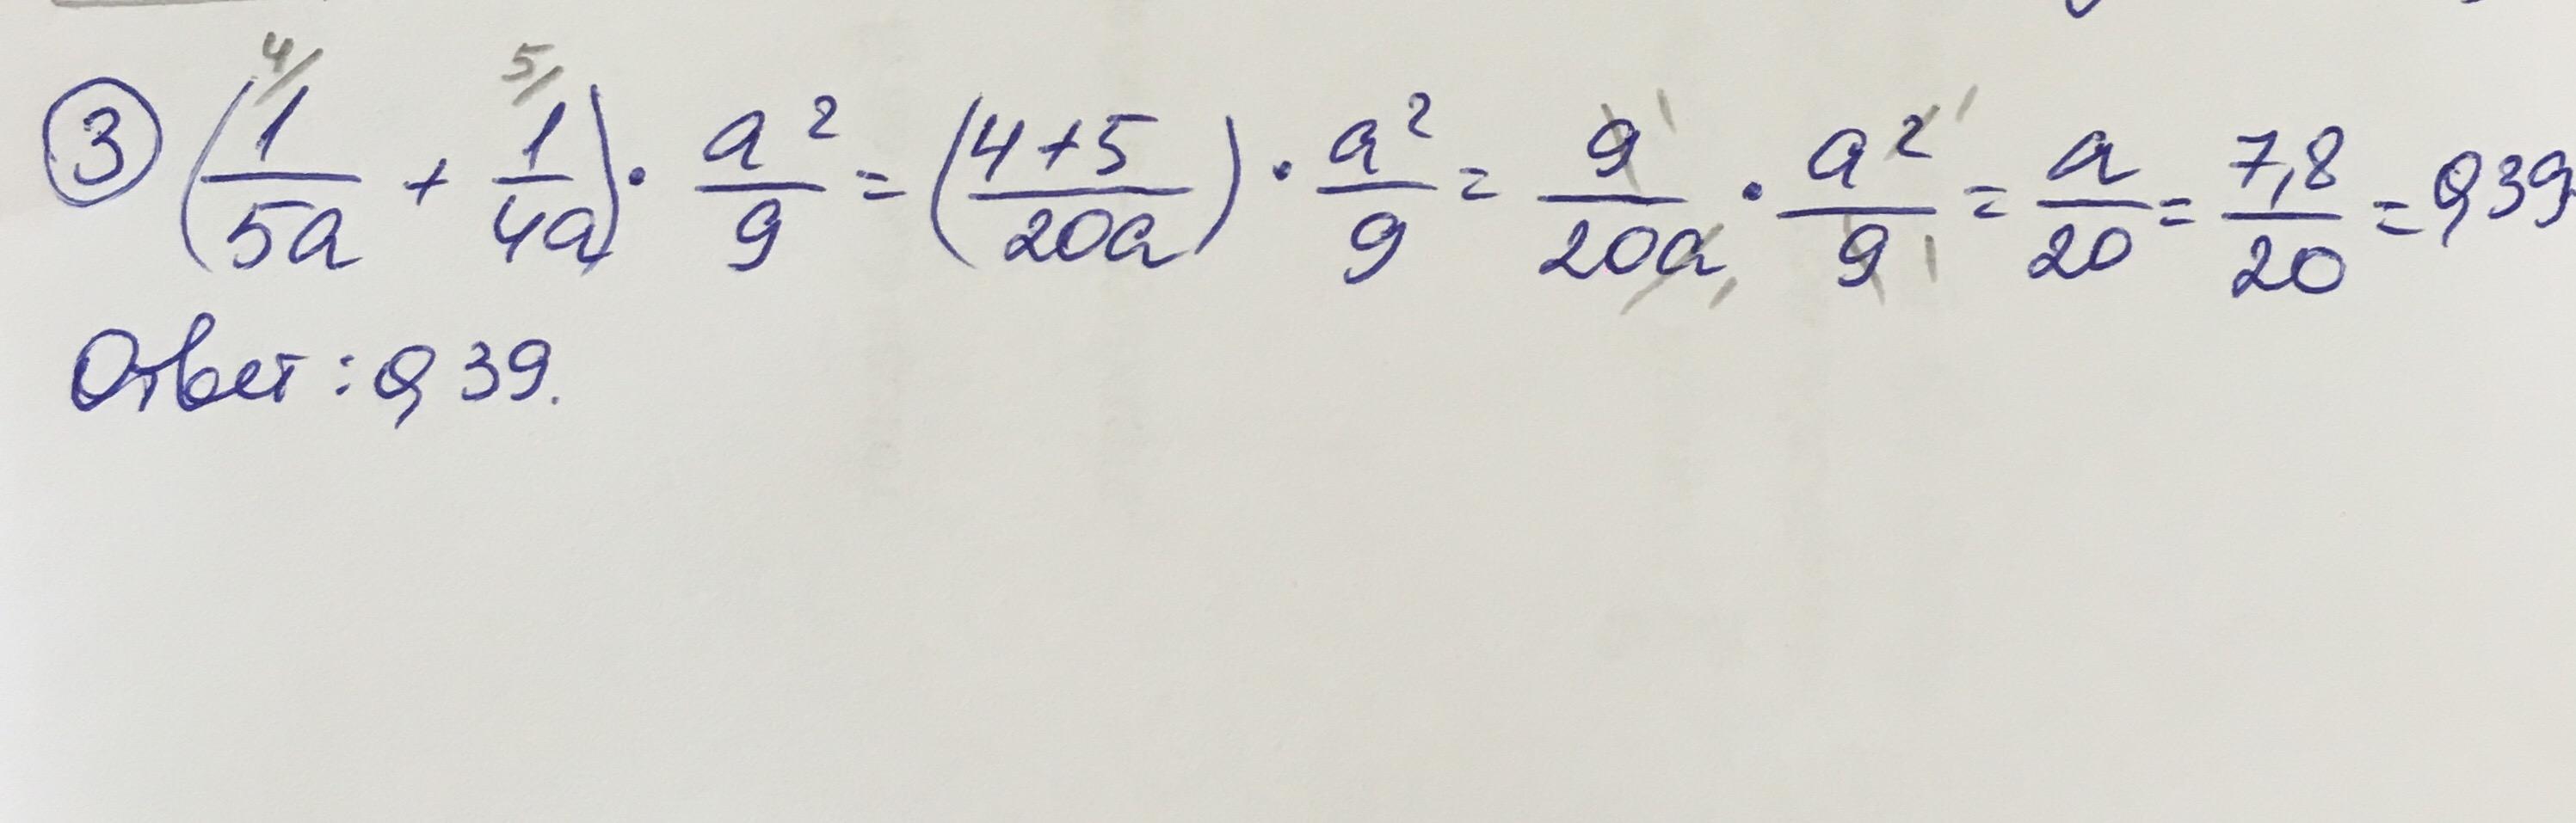 ③ (1/5a + 1/4a) · a²/9 = (4+5/20a) · a²/9 = 9/20a · a²/9 = a/20 = 7,8/20 = 0,39
Ответ: 0,39.